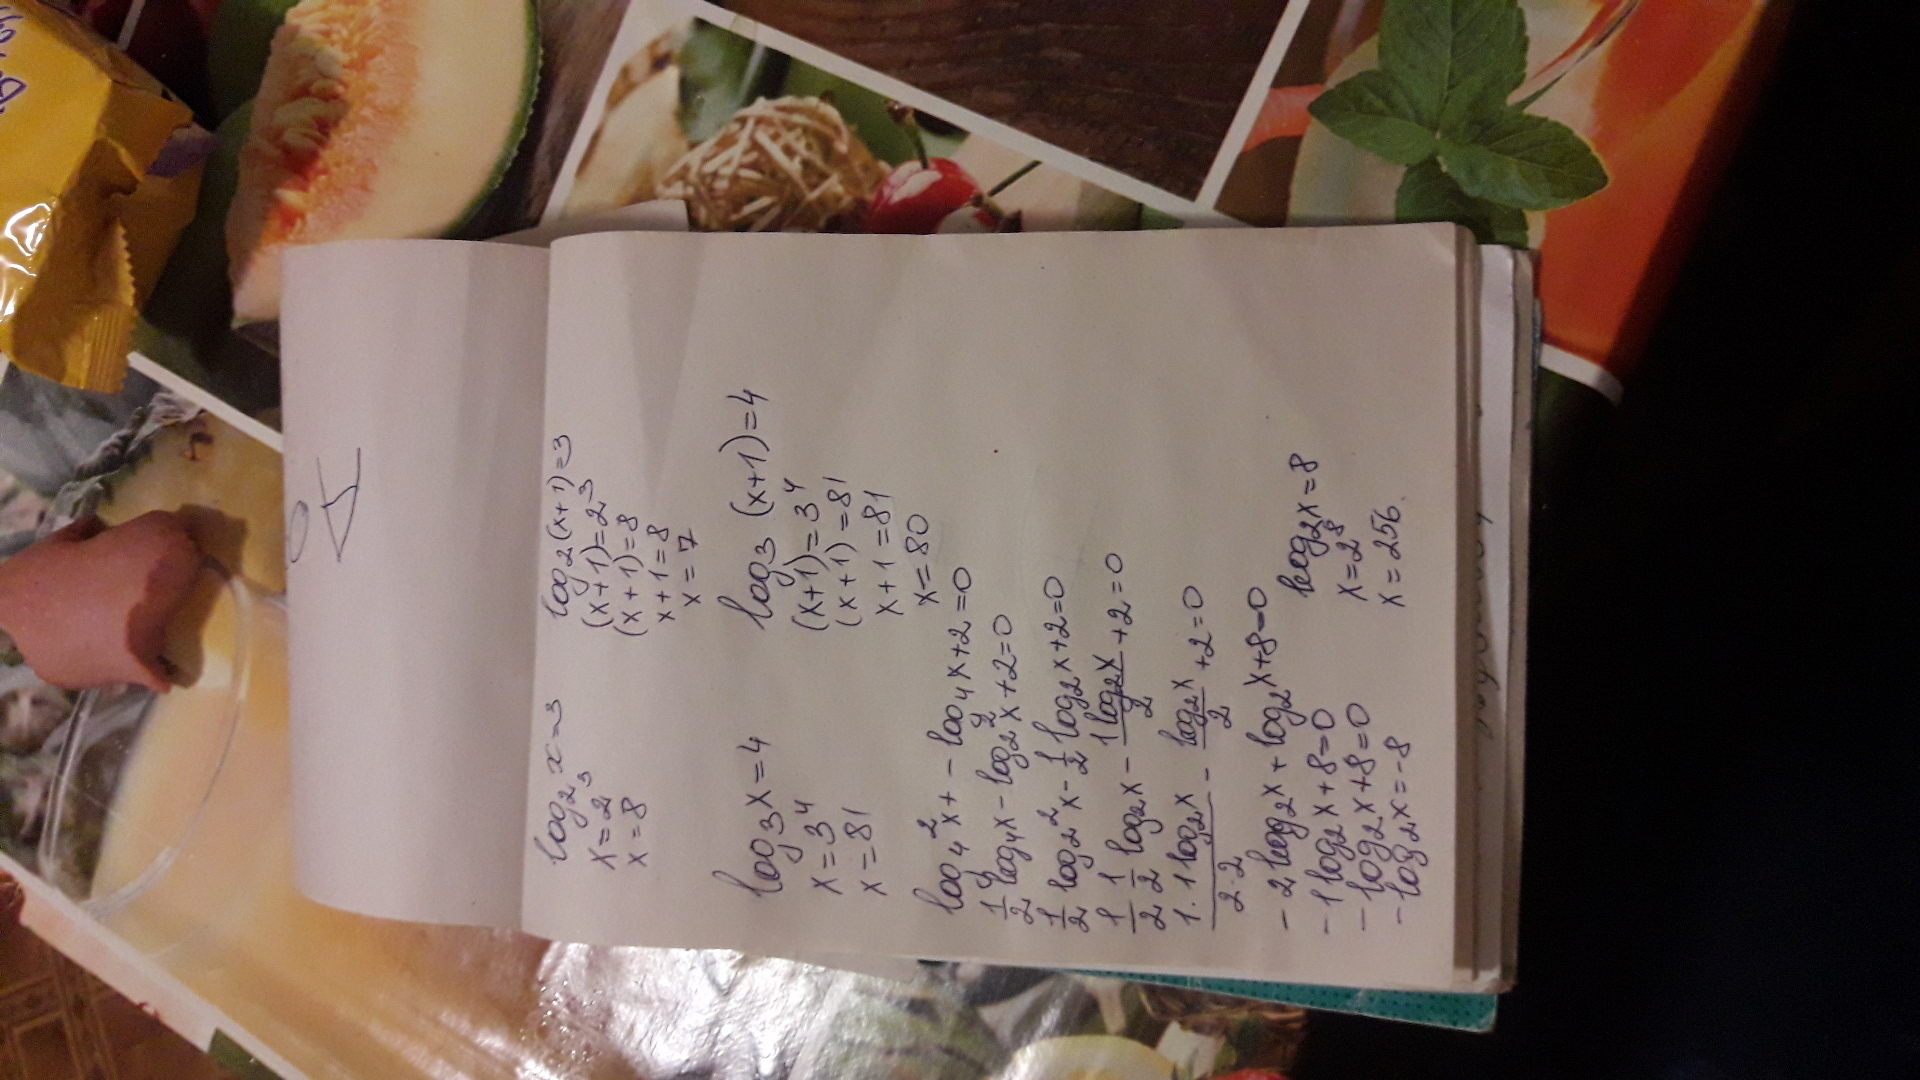 log₂x=3
x=2³
x=8
log₂(x+1)=3
(x+1)=2³
(x+1)=8
x+1=8
x=7
log₃x=4
x=3⁴
x=81
log₃(x+1)=4
(x+1)=3⁴
(x+1)=81
x+1=81
x=80
log₄²x+-log₄x+2=0
-log₂²x+2=0
1/2 log₂²x-1/2 log₂x+2=0
1/2 1/2 log₂x-1log₂x/2+2=0
1·1log₂x/2·2-log₂x/2+2=0
-2log₂x+log₂x+8=0
-1log₂x+8=0
-log₂x+8=0
-log₂x=-8
log₂x=8
x=2⁸
x=256.